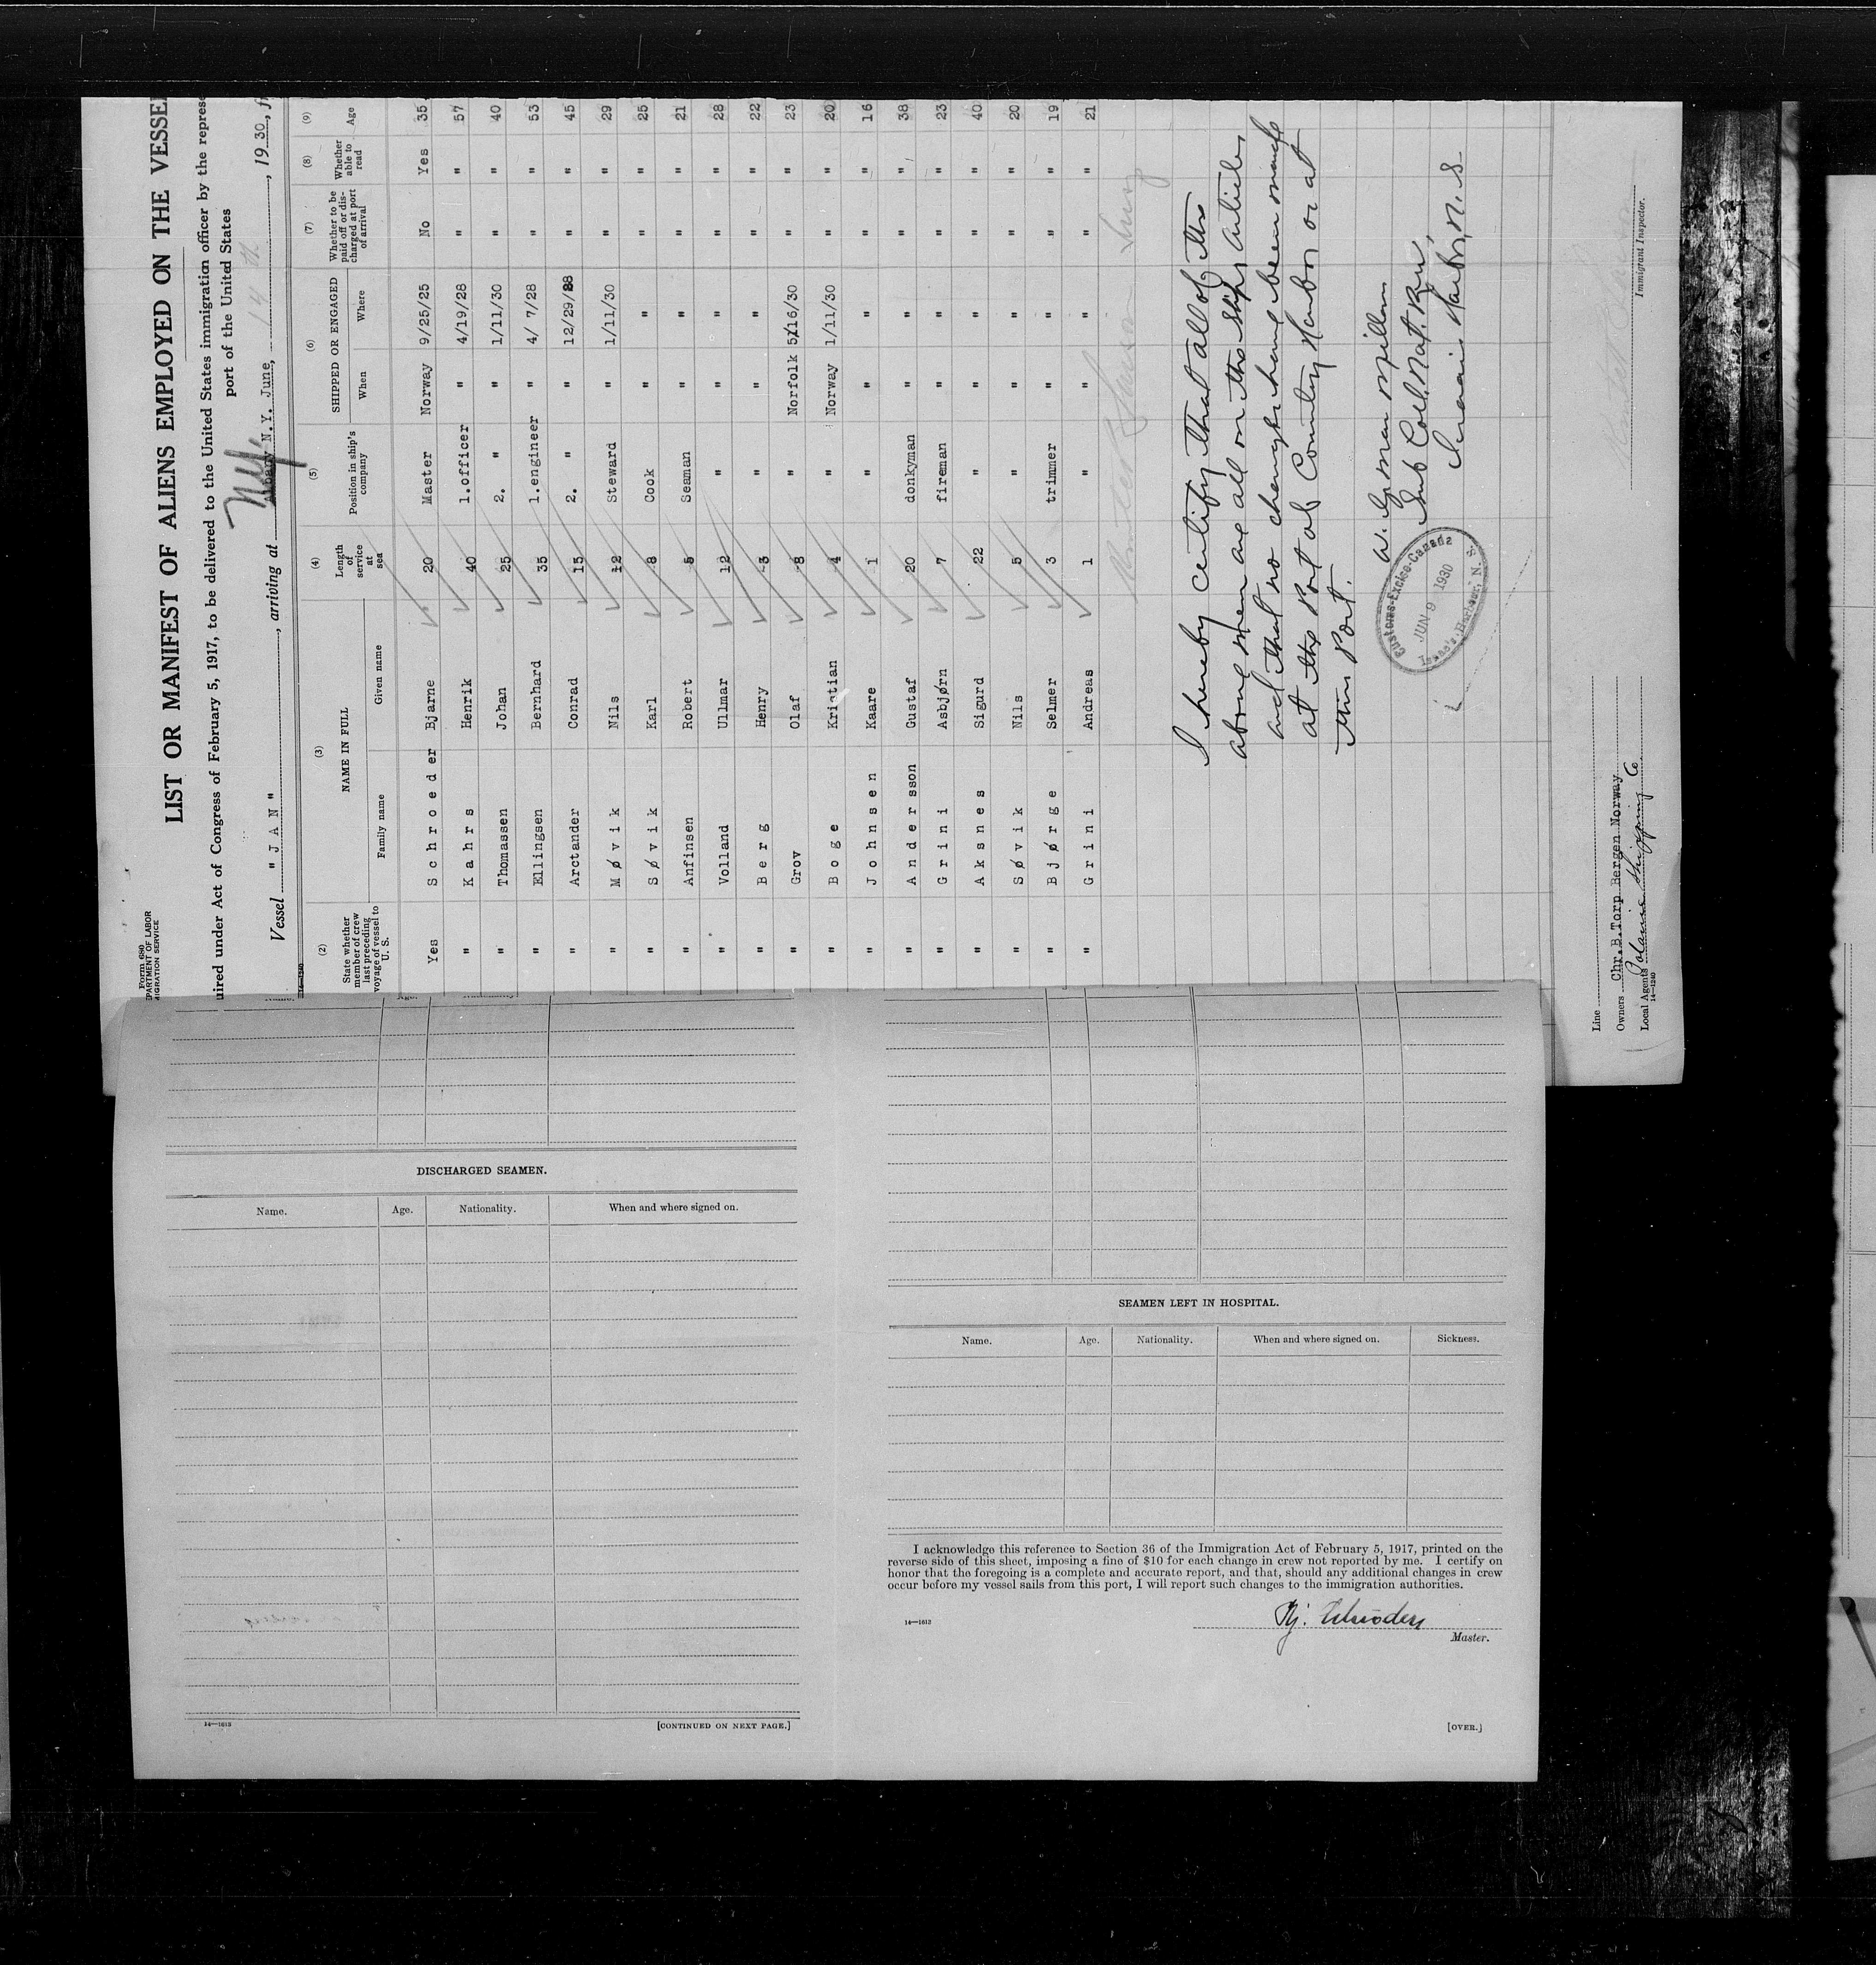 Form 680
DEPARTMENT OF LABOR
IMMIGRATION SERVICE
LIST OR MANIFEST OF ALIENS EMPLOYED ON THE VESSEL
uired under Act of Congress of February 5, 1917, to be delivered to the United States immigration officer by the represe
port of the United States
Vessel "JAN" , arriving at Albany N.Y. June, 14 th , 1930, fr
(2) (3) (4) (5) (6) (7) (8) (9)
State whether member of crew last preceding voyage of vessel to U. S. NAME IN FULL Family name Given name Length of service at sea Position in ship's company SHIPPED OR ENGAGED When Where Whether to be paid off or discharged at port of arrival Whether able to read Age
Yes Schroeder Bjarne 20 Master Norway 9/25/25 No Yes 35
" Kahrs Henrik 40 1.officer " 4/19/28 " " 57
" Thomassen Johan 25 2. " " 1/11/30 " " 40
" Ellingsen Bernhard 35 1.engineer " 4/ 7/28 " " 53
" Arctander Conrad 15 2. " " 12/29/28 " " 45
" Møvik Nils 12 Steward " 1/11/30 " " 29
" Søvik Karl 8 Cook " " " " 25
" Anfinsen Robert 5 Seaman " " " " 21
" Volland Ullmar 12 " " " " " 28
" Berg Henry 3 " " " " " 22
" Grov Olaf 8 " Norfolk 5/16/30 " " 23
" Boge Kristian 4 " Norway 1/11/30 " " 20
" Johnsen Kaare 1 " " " " " 16
" Andersson Gustaf 20 donkyman " " " " 38
" Grini Asbjørn 7 fireman " " " " 23
" Aksnes Sigurd 22 " " " " " 40
" Søvik Nils 5 " " " " " 20
" Bjørge Selmer 3 trimmer " " " " 19
" Grini Andreas 1 " " " " " 21
I hereby certify that all of the
above men are all on the ship's articles
and that no changes have been made
at the Port of Country Harbor or at
this Port.
Sub Coll. Nat. Rev,
Isaacs Harbor, N. S
Customs-Excise-Canada
JUN 9 1930
Isaac's Harbour, N. S.
Immigrant Inspector.
Line
Owners Chr.B.Torp Bergen Norway
Local Agents Shipping Co.
14—1240
DISCHARGED SEAMEN.
Name. Age. Nationality. When and where signed on.
14—1613
[CONTINUED ON NEXT PAGE.]
SEAMEN LEFT IN HOSPITAL.
Name. Age. Nationality. When and where signed on. Sickness.
I acknowledge this reference to Section 36 of the Immigration Act of February 5, 1917, printed on the
reverse side of this sheet, imposing a fine of $10 for each change in crew not reported by me. I certify on
honor that the foregoing is a complete and accurate report, and that, should any additional changes in crew
occur before my vessel sails from this port, I will report such changes to the immigration authorities.
14—1613
Bj. Schröder
Master.
[OVER.]